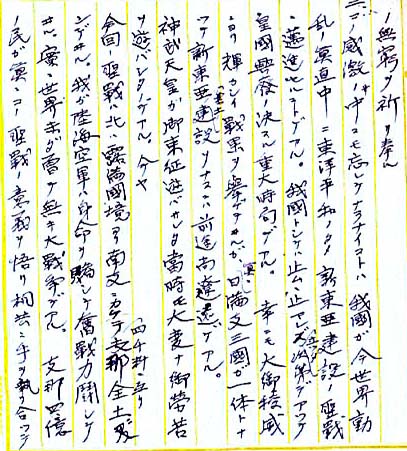 ノ無窮ヲ祈リ奉ル
コノ感激ノ中ニモ忘レテナラナイコトハ我國ガ今世界動
乱ノ眞直中ニ東洋平和ノタメ新東亜建設ノ聖戰
ニ邁進セルコトデアル。我國トシテハ止ムニ止マレズ次第デアツテ
皇國興廢ノ決スル重大時局デアル。幸ニモ大御稜威
ニヨリ輝カシイ戰果ヲ擧ゲテヰルガ眞ニ日満支三國ガ一体トナ
ツテ新東亜建設ヲナスハ前途尚遼遠デアル。
神武天皇ガ御東征遊バサレタ當時モ大変ナ御労苦
ヲ遊バシタノデアル。今ヤ
今回ノ聖戰ハ北ハ露満國境ヨリ南支ニカケテ支那全土ニ
シテヰル。我ガ陸海空軍ハ身命ヲ賭シテ奮戰力闘シテ
ヰル。實ニ世界未ダ曽テ無キ大戰争デアル。支那四億
ノ民ガ眞ニコノ聖戰ノ意義ヲ悟リ相共ニ手ヲ執リ合ツテ